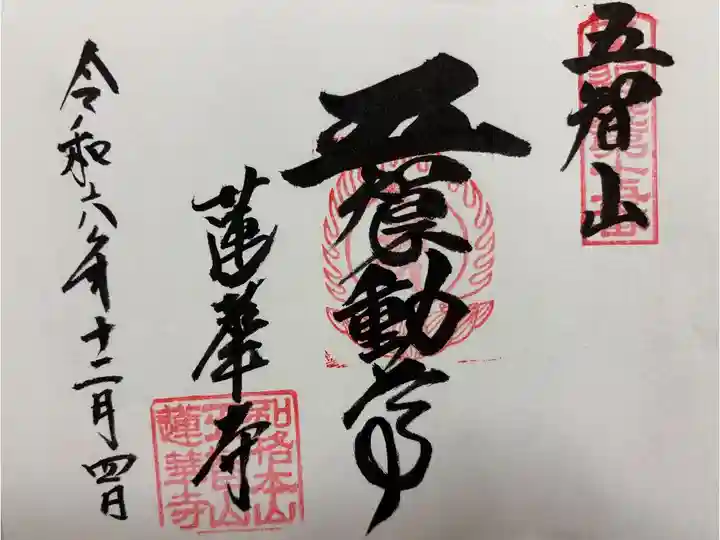 五智山
五智不動尊
蓮華寺
別格本山
五智山
蓮華寺
令和六年十二月四日